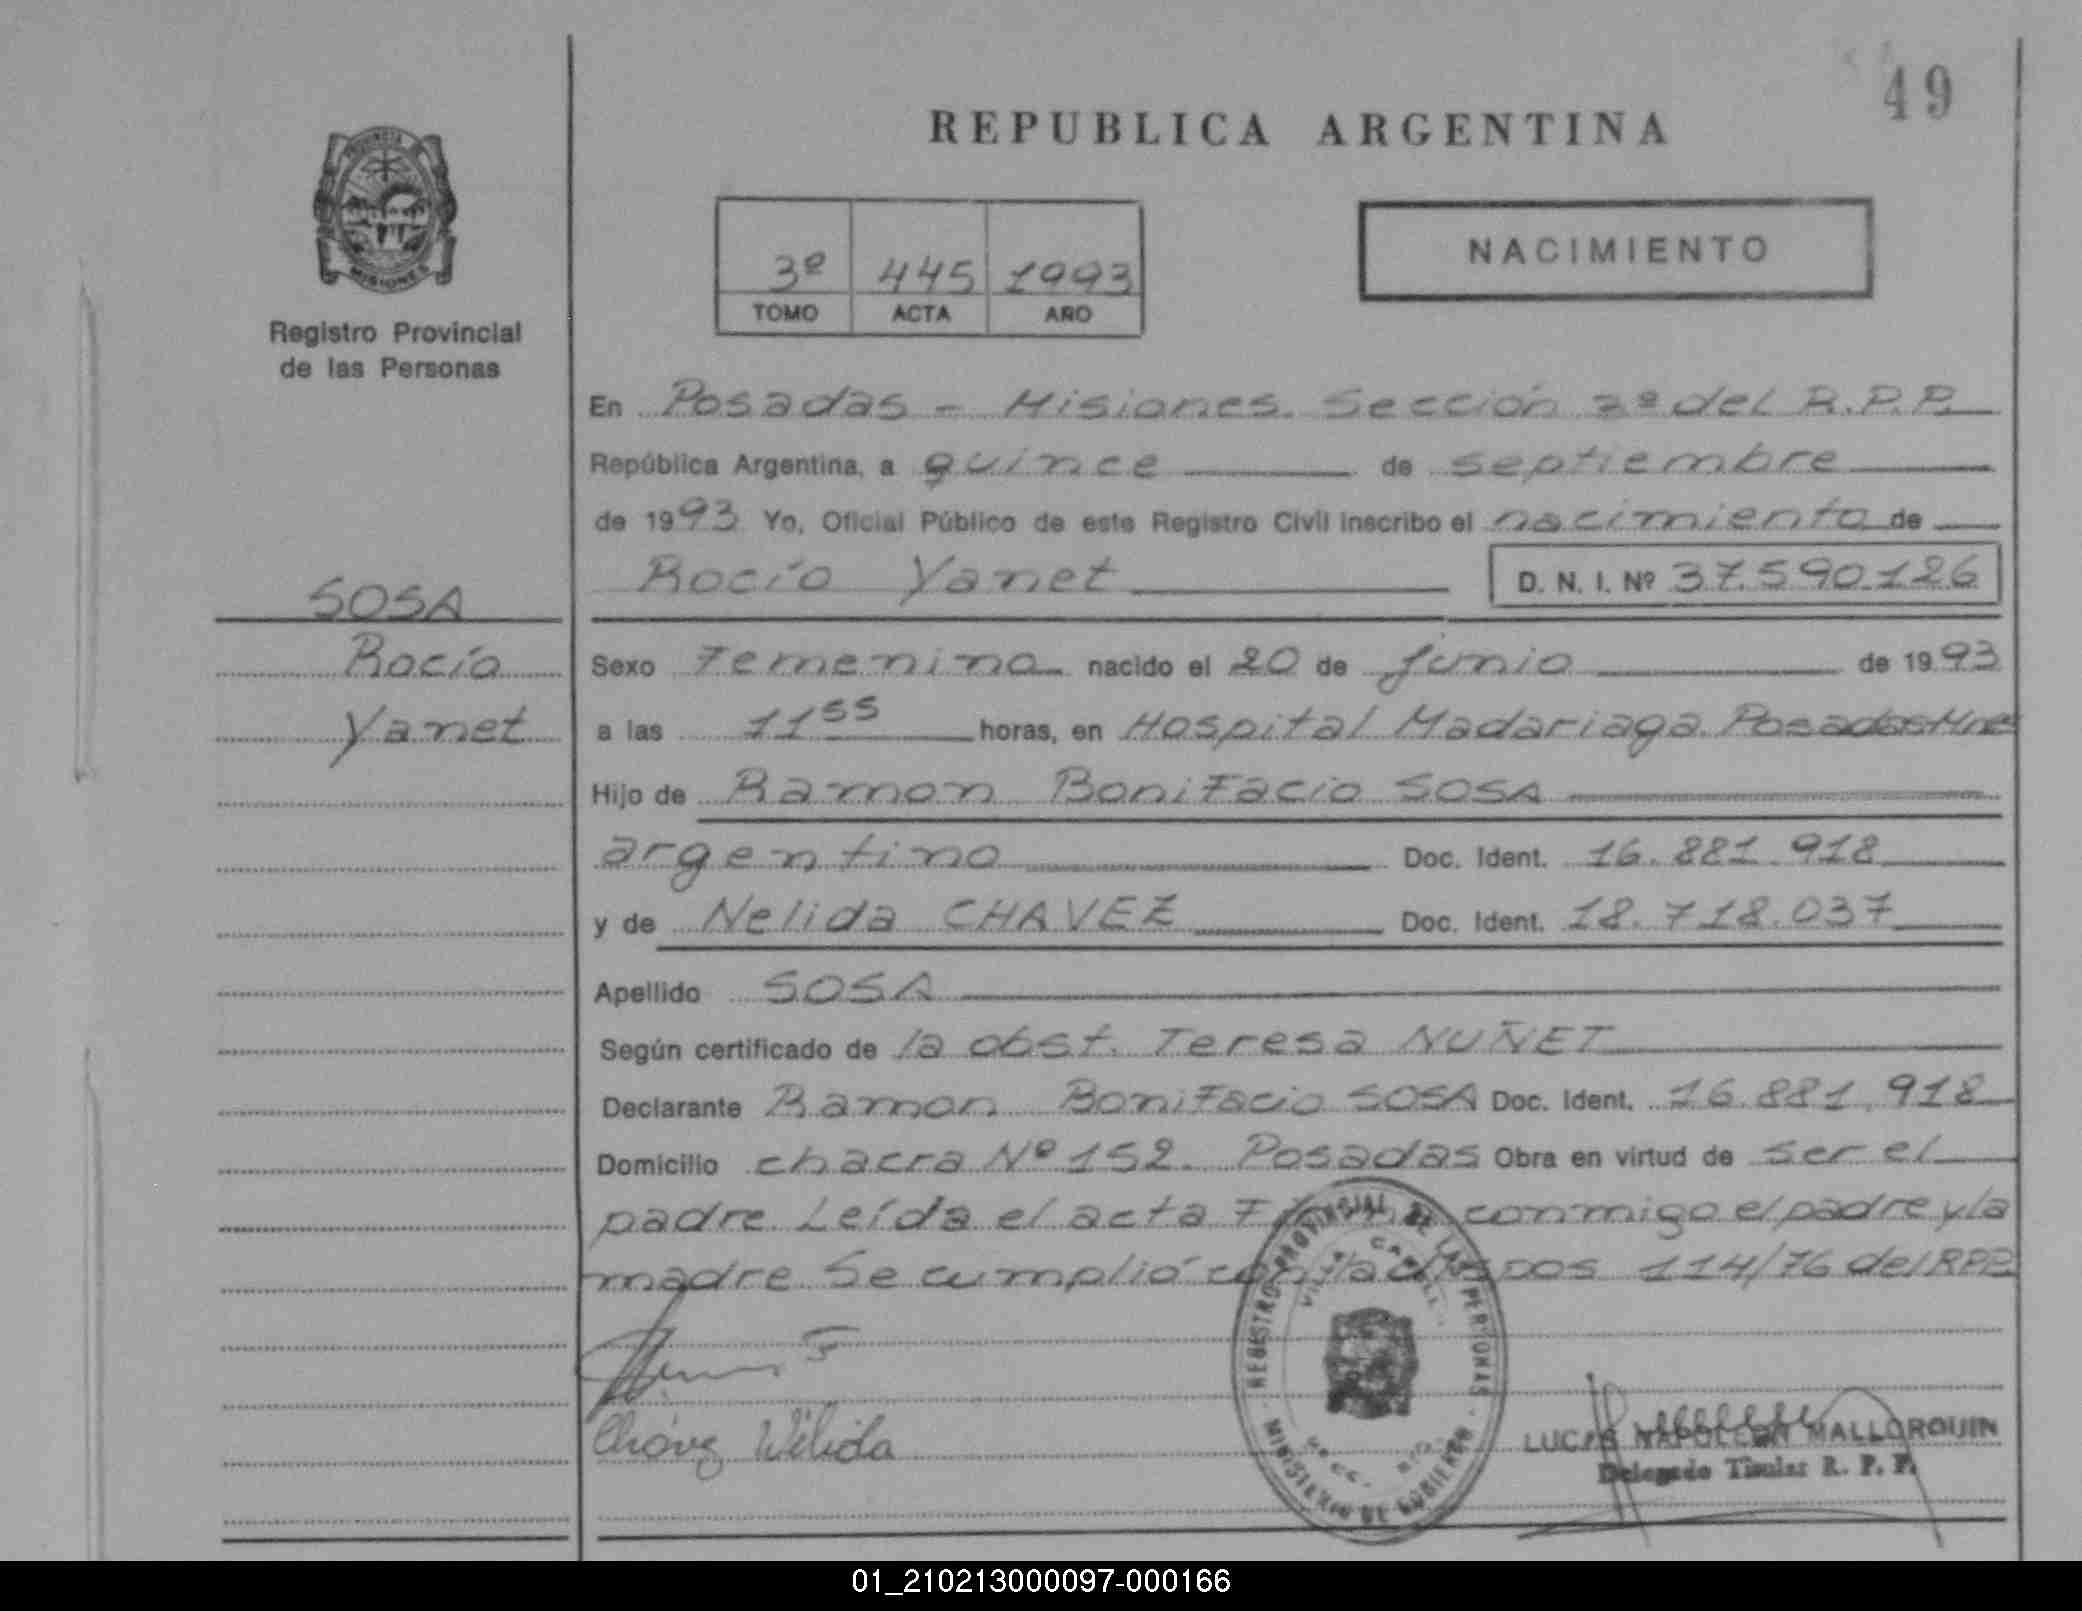 49
REPUBLICA ARGENTINA
PROVINCIA
MISIONES
Registro Provincial
de las Personas
3º 445 1993
TOMO ACTA AÑO
NACIMIENTO
En Posadas - Misiones. Sección 2ª del R.P.P.
República Argentina, a quince de septiembre
de 1993 Yo, Oficial Público de este Registro Civil inscribo el nacimiento de
Rocío Yanet D. N. I. Nº 37.590.126
SOSA
Rocío
Yanet
Sexo Femenino nacido el 20 de Junio de 1993
a las 11 55 horas, en Hospital Madariaga. Posadas Mnes
Hijo de Ramon Bonifacio SOSA
argentino Doc. Ident. 16.881.918
y de Nelida CHAVEZ Doc. Ident. 18.718.037
Apellido SOSA
Según certificado de la obst. Teresa NUÑET
Declarante Ramon Bonifacio SOSA Doc. Ident. 16.881.918
Domicilio chacra Nº 152. Posadas Obra en virtud de ser el
padre Leída el acta conmigo el padre y la
madre Se cumplió con la 114/76 del RPP
REGISTRO PROVINCIAL DE LAS PERSONAS
VILLA CABELL
MINISTERIO DE GOBIERNO
Chávez Nélida
LUCAS NAPOLEON MALLORQUIN
Delegado Titular R. P. P.
01_210213000097-000166